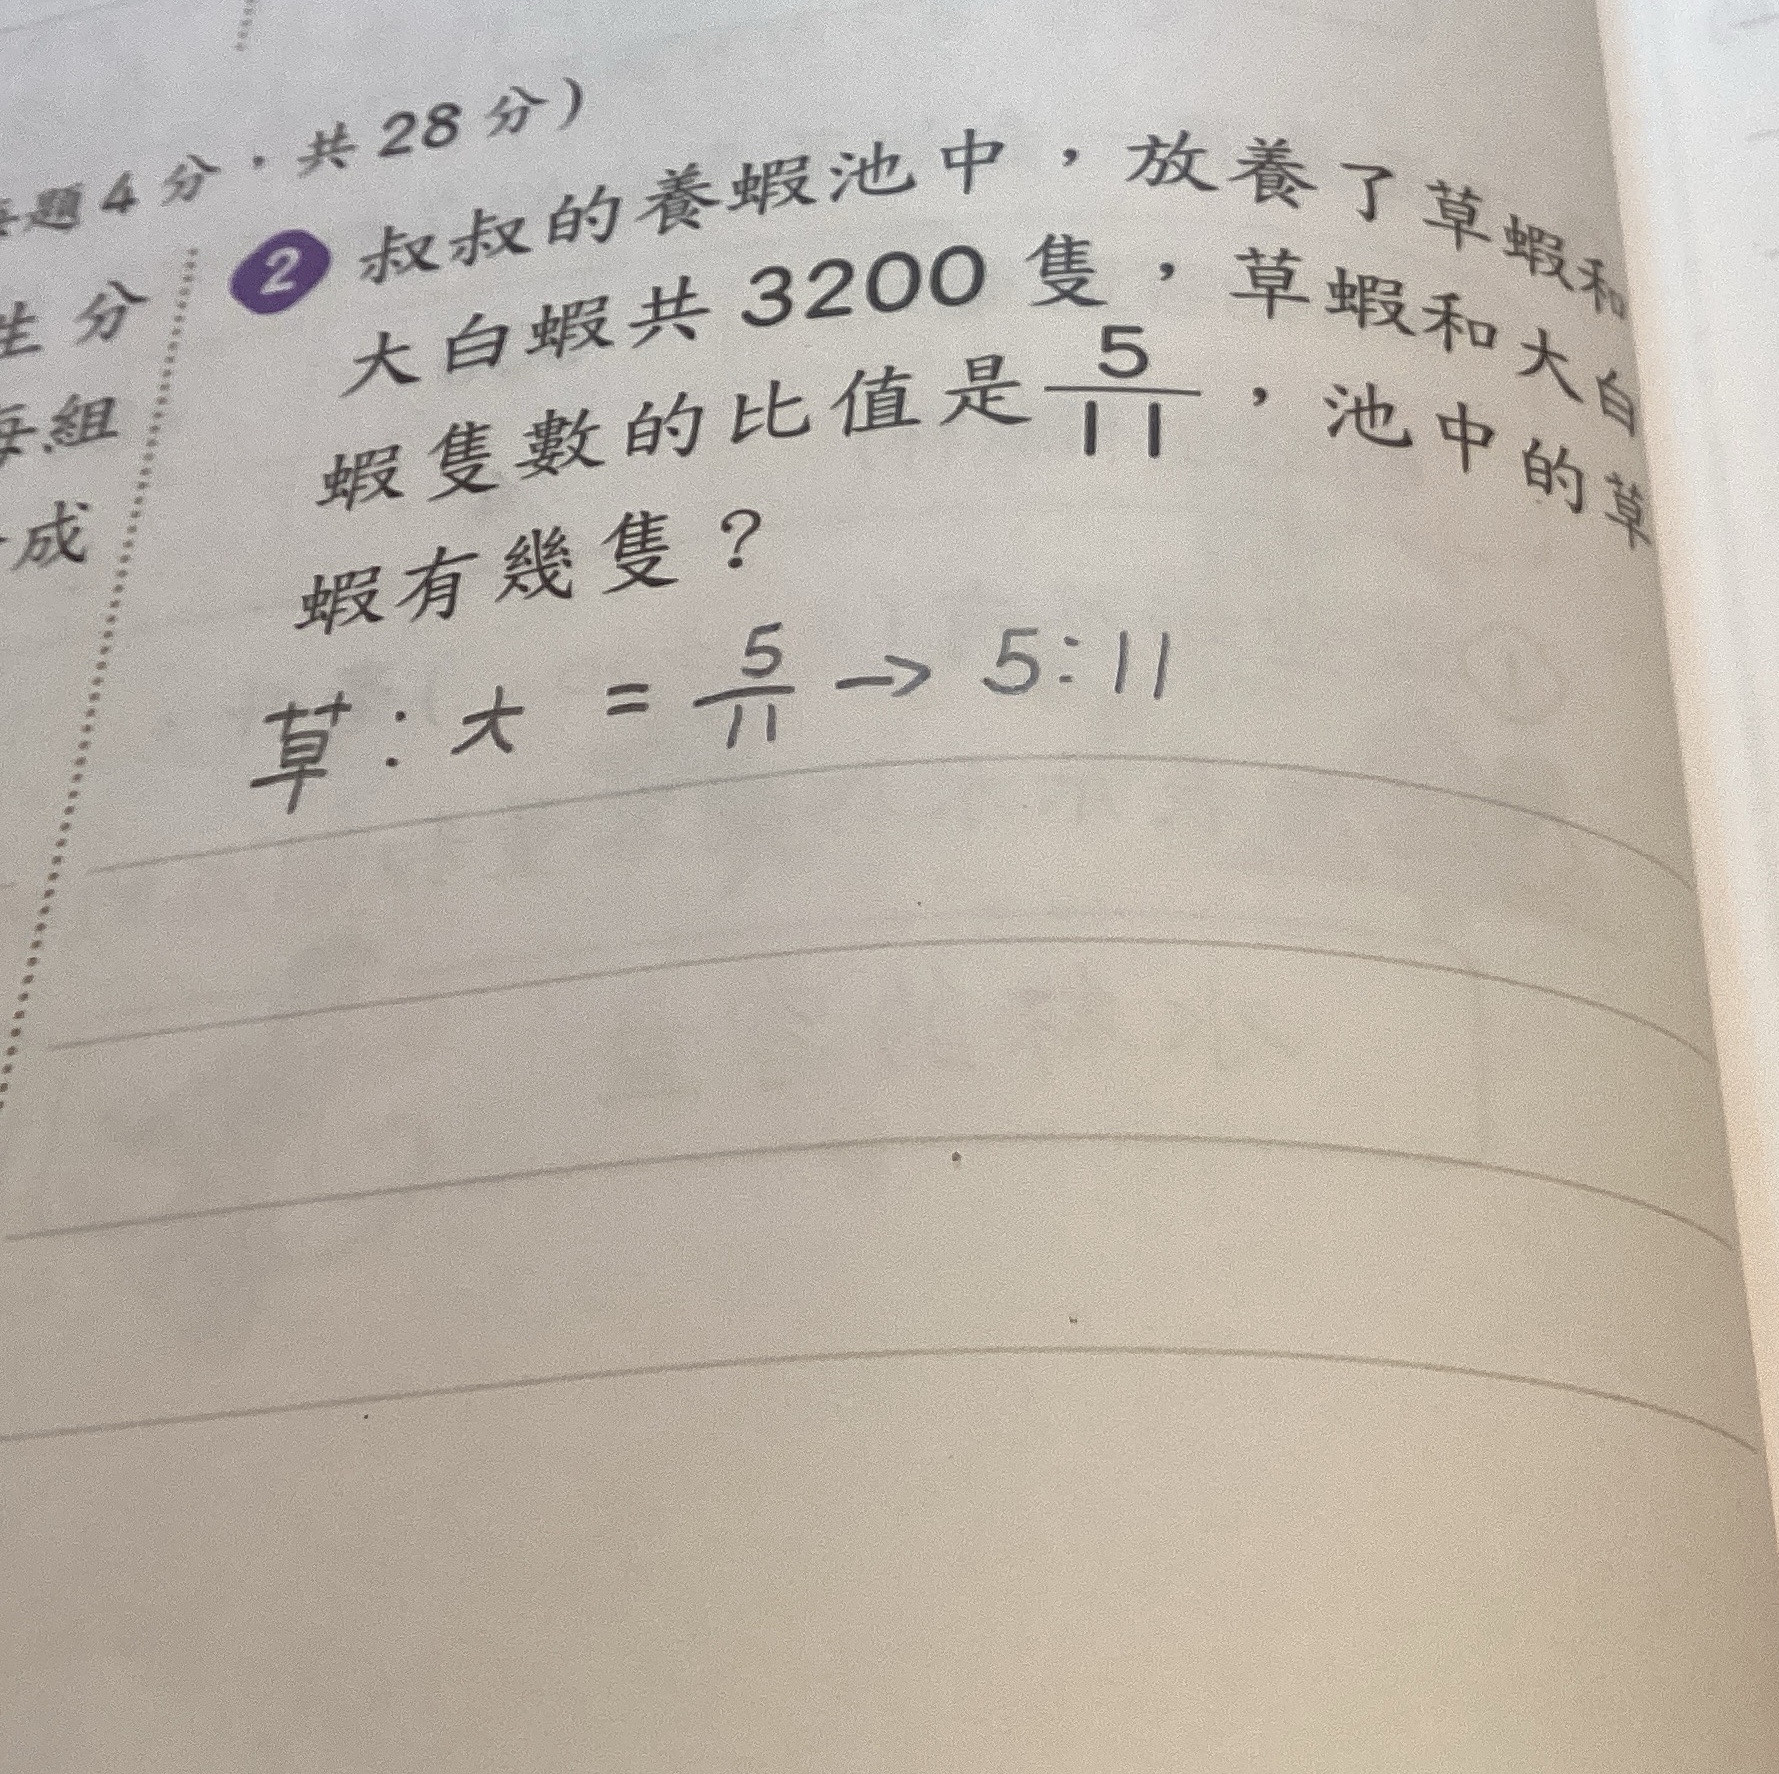 題4分，共28分）
生分
每組
成
2 叔叔的養蝦池中，放養了草蝦和
大白蝦共3200隻，草蝦和大白
蝦隻數的比值是5/11，池中的草
蝦有幾隻？
草：大 = 5/11 → 5：11